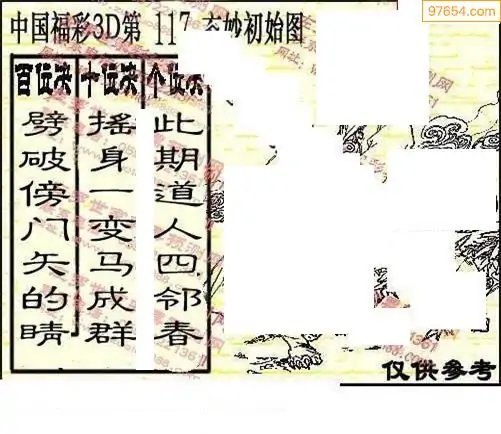 97654.com
中国福彩3D第 117 玄妙初始图
百位决 十位决 个位决
劈破傍门矢的睛
摇身一变马成群
此期道人四邻春
仅供参考